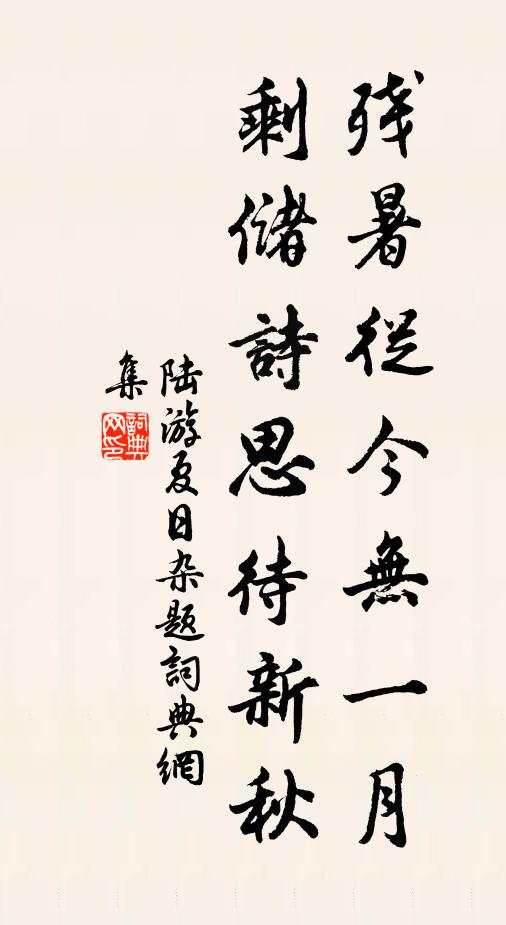 残暑從今無一月
剩儲詩思待新秋
陆游夏日杂题詞典網
集
詞典网印